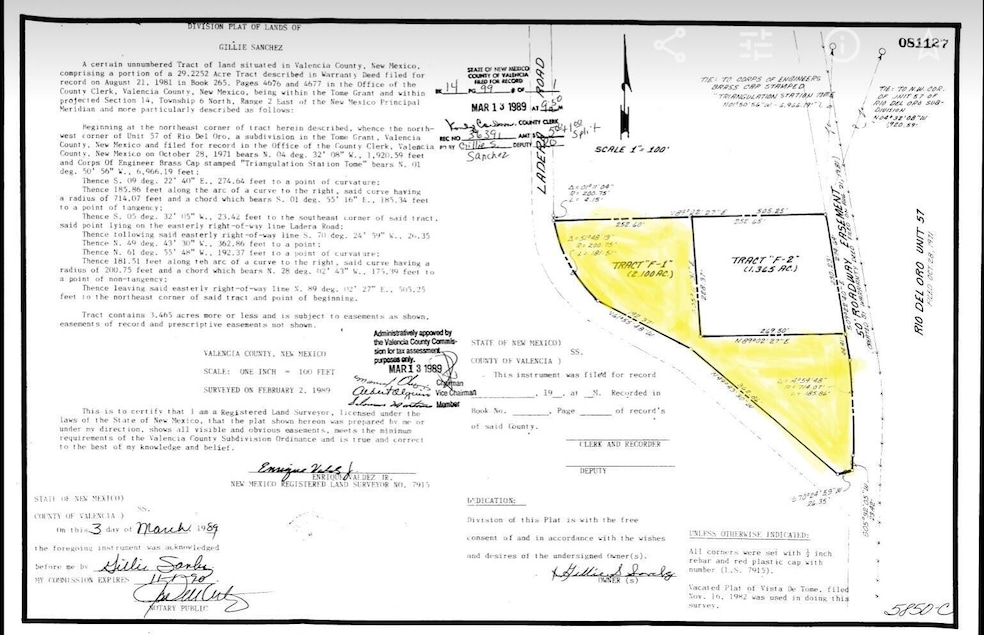 DIVISION PLAT OF LANDS OF
GILLIE SANCHEZ
A certain unnumbered Tract of land situated in Valencia County, New Mexico,
comprising a portion of a 29.2252 Acre Tract described in Warranty Deed filed for
record on August 21, 1981 in Book 265, Pages 4676 and 4677 in the Office of the
County Clerk, Valencia County, New Mexico, being within the Tome Grant and within
projected Section 14, Township 6 North, Range 2 East of the New Mexico Principal
Meridian and more particularly described as follows:
Beginning at the northeast corner of tract herein described, whence the north-
west corner of Unit 57 of Rio Del Oro, a subdivision in the Tome Grant, Valencia
County, New Mexico and filed for record in the Office of the County Clerk, Valencia
County, New Mexico on October 28, 1971 bears N. 04 deg. 32' 08" W., 1,920.59 feet
and Corps Of Engineer Brass Cap stamped "Triangulation Station Tome" bears N. 01
deg. 50' 56" W., 6,966.19 feet;
Thence S. 09 deg. 22' 40" E., 274.64 feet to a point of curvature;
Thence 185.86 feet along the arc of a curve to the right, said curve having
a radius of 714.07 feet and a chord which bears S. 01 deg. 55' 16" E., 185.34 feet
to a point of tangency;
Thence S. 05 deg. 32' 05" W., 23.42 feet to the southeast corner of said tract,
said point lying on the easterly right-of-way line Ladera Road;
Thence following said easterly right-of-way line S. 70 deg. 24' 59" W., 26.35
Thence N. 49 deg. 43' 30" W., 362.86 feet to a point;
Thence N. 61 deg. 55' 48" W., 192.37 feet to a point of curvature;
Thence 181.51 feet along teh arc of a curve to the right, said curve having a
radius of 200.75 feet and a chord which bears N. 28 deg. 02' 43" W., 175.39 feet to
a point of non-tangency;
Thence leaving said easterly right-of-way line N. 89 deg. 02' 27" E., 505.25
feet to the northeast corner of said tract and point of beginning.
Tract contains 3.465 acres more or less and is subject to easements as shown,
easements of record and prescriptive easements not shown.
VALENCIA COUNTY, NEW MEXICO
SCALE: ONE INCH = 100 FEET
SURVEYED ON FEBRUARY 2, 1989
Administratively appoved by
the Valencia County Commis-
sion for tax assessment
purposes only.
MAR 13 1989
Chairman
Vice Chairman
Member
This is to certify that I am a Registered Land Surveyor, licensed under the
laws of the State of New Mexico, that the plat shown hereon was prepared by me or
under my direction, shows all visible and obvious easements, meets the minimum
requirements of the Valencia County Subdivision Ordinance and is true and correct
to the best of my knowledge and belief.
ENRIQUE VALDEZ JR.
NEW MEXICO REGISTERED LAND SURVEYOR NO. 7915
STATE OF NEW MEXICO)
SS.
COUNTY OF VALENCIA )
On this 3 day of March, 1989
the foregoing instrument was acknowledged
before me by Gillie Sanchez
MY COMMISSION EXPIRES 11-17-90
NOTARY PUBLIC
STATE OF NEW MEXICO
COUNTY OF VALENCIA
FILED FOR RECORD
BK 14 PG. 99
MAR 13 1989 AT 9:50
COUNTY CLERK
REC NO 36391 AMT $
Gillie S. DEPUTY
Sanchez
Split
STATE OF NEW MEXICO)
SS.
COUNTY OF VALENCIA )
This instrument was filed for record
, 19 at M. Recorded in
Book No. , Page of record's
of said County.
CLERK AND RECORDER
DEPUTY
DEDICATION:
Division of this Plat is with the free
consent of and in accordance with the wishes
and desires of the undersigned Owner(s).
Gillie S Sanchez
OWNER (s)
081127
TIE: TO CORPS OF ENGINEERS
BRASS CAP STAMPED
"TRIANGULATION STATION TOME
N01°50'56"W - 6,966.19'
TIE: TO N.W. COR.
OF UNIT 57 OF
RIO DEL ORO SUB-
DIVISION
N04°32'08"W
1,920.59'
SCALE 1"= 100'
LADERA ROAD
Δ= 01°11'04"
R= 200.75'
L= 4.15'
N89°02'27"E 505.25'
252.60'
TRACT "F-1"
(2.100 AC.)
TRACT "F-2"
(1.365 AC.)
269.50'
N89°02'27"E
R=714.07'
L=185.86'
50' ROADWAY EASEMENT
RIO DEL ORO UNIT 57
FILED OCT. 28, 1971
S70°24'59"W
26.35'
S05°32'05"W
23.42'
UNLESS OTHERWISE INDICATED:
All corners were set with ½ inch
rebar and red plastic cap with
number (L.S. 7915).
Vacated Plat of Vista De Tome, filed
Nov. 16, 1982 was used in doing this
survey.
5850-C